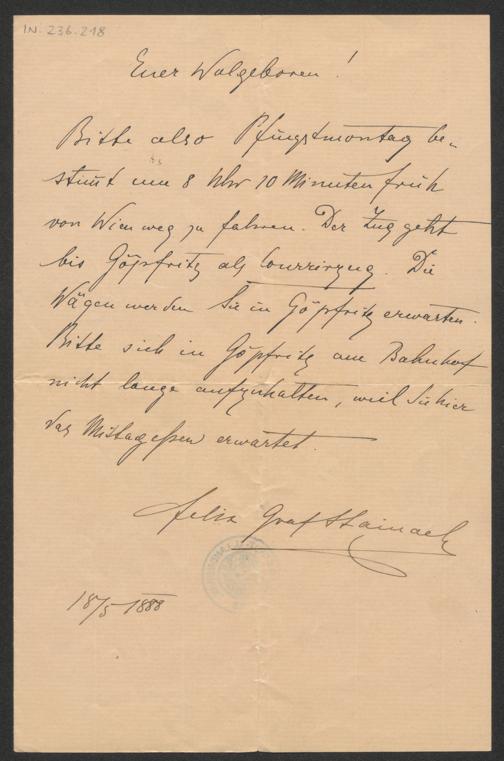 IN. 236.218
Euer Wolgeboren!
Bitte also Pfingstmontag be-
stimt um 8 Uhr 10 Minuten früh
von Wien weg zu fahren. Der Zug geht
bis Göpfritz als Courrirzug. Die
Wägen werden Sie in Göpfritz erwarten.
Bitte sich in Göpfritz am Bahnhof
nicht lange aufzuhalten, weil Sie hier
das Mittagessen erwartet.
Felix Graf
18/5 1888